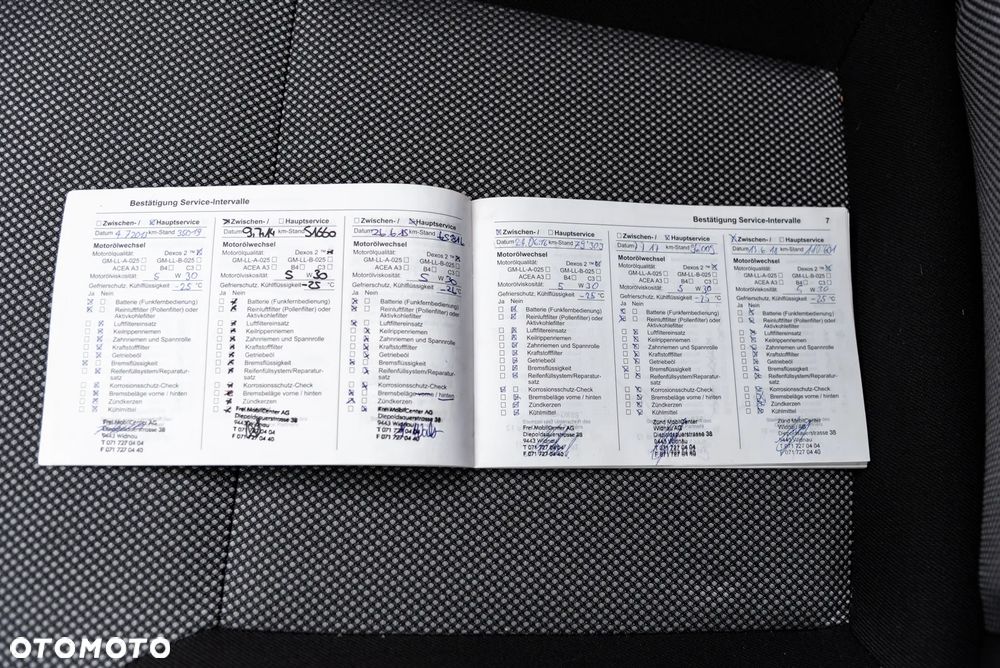 Bestätigung Service-Intervalle
Zwischen- / Hauptservice
Datum 4.7.2013 km-Stand 35019
Motorölwechsel
Motorölqualität: Dexos 2 ™
GM-LL-A-025 GM-LL-B-025
ACEA A3 B4 C3
Motorölviskosität: 5 W 30
Gefrierschutz, Kühlflüssigkeit -25 °C
Ja Nein
Batterie (Funkfernbedienung)
Reinluftfilter (Pollenfilter) oder
Aktivkohlefilter
Luftfiltereinsatz
Keilrippenriemen
Zahnriemen und Spannrolle
Kraftstofffilter
Getriebeöl
Bremsflüssigkeit
Reifenfüllsystem/Reparatur-
satz
Korrosionsschutz-Check
Bremsbeläge vorne / hinten
Zündkerzen
Kühlmittel
Frei MobilCenter AG
Diepoldsauerstrasse 38
9443 Widnau
T 071 727 04 04
F 071 727 04 40
Zwischen- / Hauptservice
Datum 9.7.14 km-Stand 51660
Motorölwechsel
Motorölqualität: Dexos 2 ™
GM-LL-A-025 GM-LL-B-025
ACEA A3 B4 C3
Motorölviskosität: 5 W 30
Gefrierschutz, Kühlflüssigkeit -25 °C
Ja Nein
Batterie (Funkfernbedienung)
Reinluftfilter (Pollenfilter) oder
Aktivkohlefilter
Luftfiltereinsatz
Keilrippenriemen
Zahnriemen und Spannrolle
Kraftstofffilter
Getriebeöl
Bremsflüssigkeit
Reifenfüllsystem/Reparatur-
satz
Korrosionsschutz-Check
Bremsbeläge vorne / hinten
Zündkerzen
Kühlmittel
Frei MobilCenter AG
Diepoldsauerstrasse 38
9443 Widnau
T 071 727 04 04
F 071 727 04 40
Zwischen- / Hauptservice
Datum 26.6.15 km-Stand
Motorölwechsel
Motorölqualität: Dexos 2 ™
GM-LL-A-025 GM-LL-B-025
ACEA A3 B4 C3
Motorölviskosität: 5 W 30
Gefrierschutz, Kühlflüssigkeit -26 °C
Ja Nein
Batterie (Funkfernbedienung)
Reinluftfilter (Pollenfilter) oder
Aktivkohlefilter
Luftfiltereinsatz
Keilrippenriemen
Zahnriemen und Spannrolle
Kraftstofffilter
Getriebeöl
Bremsflüssigkeit
Reifenfüllsystem/Reparatur-
satz
Korrosionsschutz-Check
Bremsbeläge vorne / hinten
Zündkerzen
Kühlmittel
Frei MobilCenter AG
Diepoldsauerstrasse 38
9443 Widnau
T 071 727 04 04
F 071 727 04 40
Bestätigung Service-Intervalle 7
Zwischen- / Hauptservice
Datum km-Stand 79'303
Motorölwechsel
Motorölqualität: Dexos 2 ™
GM-LL-A-025 GM-LL-B-025
ACEA A3 B4 C3
Motorölviskosität: 5 W 30
Gefrierschutz, Kühlflüssigkeit -25 °C
Ja Nein
Batterie (Funkfernbedienung)
Reinluftfilter (Pollenfilter) oder
Aktivkohlefilter
Luftfiltereinsatz
Keilrippenriemen
Zahnriemen und Spannrolle
Kraftstofffilter
Getriebeöl
Bremsflüssigkeit
Reifenfüllsystem/Reparatur-
satz
Korrosionsschutz-Check
Bremsbeläge vorne / hinten
Zündkerzen
Kühlmittel
Frei MobilCenter AG
Diepoldsauerstrasse 38
9443 Widnau
T 071 727 04 04
F 071 727 04 40
Zwischen- / Hauptservice
Datum km-Stand
Motorölwechsel
Motorölqualität: Dexos 2 ™
GM-LL-A-025 GM-LL-B-025
ACEA A3 B4 C3
Motorölviskosität: 5 W 30
Gefrierschutz, Kühlflüssigkeit -25 °C
Ja Nein
Batterie (Funkfernbedienung)
Reinluftfilter (Pollenfilter) oder
Aktivkohlefilter
Luftfiltereinsatz
Keilrippenriemen
Zahnriemen und Spannrolle
Kraftstofffilter
Getriebeöl
Bremsflüssigkeit
Reifenfüllsystem/Reparatur-
satz
Korrosionsschutz-Check
Bremsbeläge vorne / hinten
Zündkerzen
Kühlmittel
Zünd MobilCenter
Widnau AG
Diepoldsauerstrasse 38
9443 Widnau
T 071 727 04 04
F 071 727 04 40
Zwischen- / Hauptservice
Datum km-Stand
Motorölwechsel
Motorölqualität: Dexos 2 ™
GM-LL-A-025 GM-LL-B-025
ACEA A3 B4 C3
Motorölviskosität: 5 W 30
Gefrierschutz, Kühlflüssigkeit -25 °C
Ja Nein
Batterie (Funkfernbedienung)
Reinluftfilter (Pollenfilter) oder
Aktivkohlefilter
Luftfiltereinsatz
Keilrippenriemen
Zahnriemen und Spannrolle
Kraftstofffilter
Getriebeöl
Bremsflüssigkeit
Reifenfüllsystem/Reparatur-
satz
Korrosionsschutz-Check
Bremsbeläge vorne / hinten
Zündkerzen
Kühlmittel
Zünd MobilCenter
Widnau AG
Diepoldsauerstrasse 38
9443 Widnau
T 071 727 04 04
F 071 727 04 40
OTOMOTO